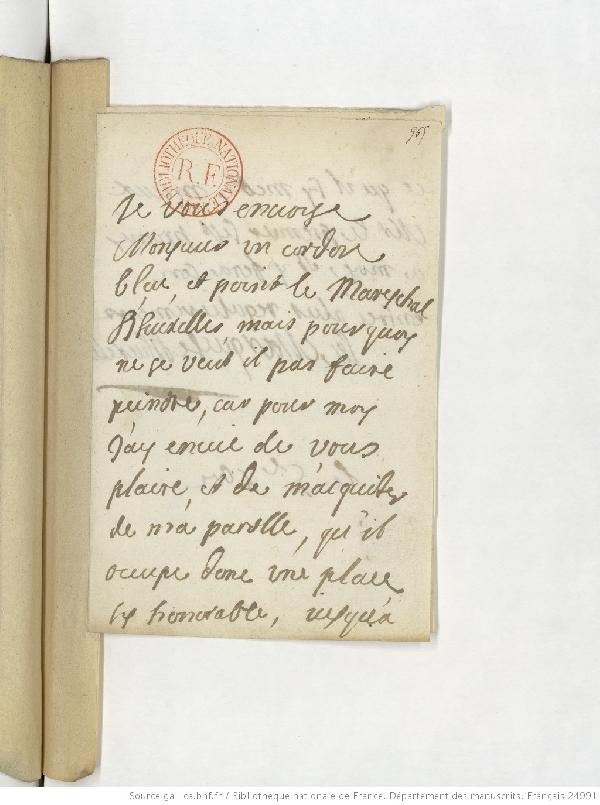 BIBLIOTHEQUE NATIONALE
R.F.
Je vous envoye
Monsieur un cordon
bleu, et point le Mareschal
d'huxelles mais pourquoy
ne se veut il pas faire
peindre, car pour moy
j'ay envie de vous
plaire, et de m'acquiter
de ma parolle, qu'il
occupe donc une place
sy honorable, jusqu'a
Source gallica.bnf.fr / Bibliothèque nationale de France. Département des manuscrits. Français 24991